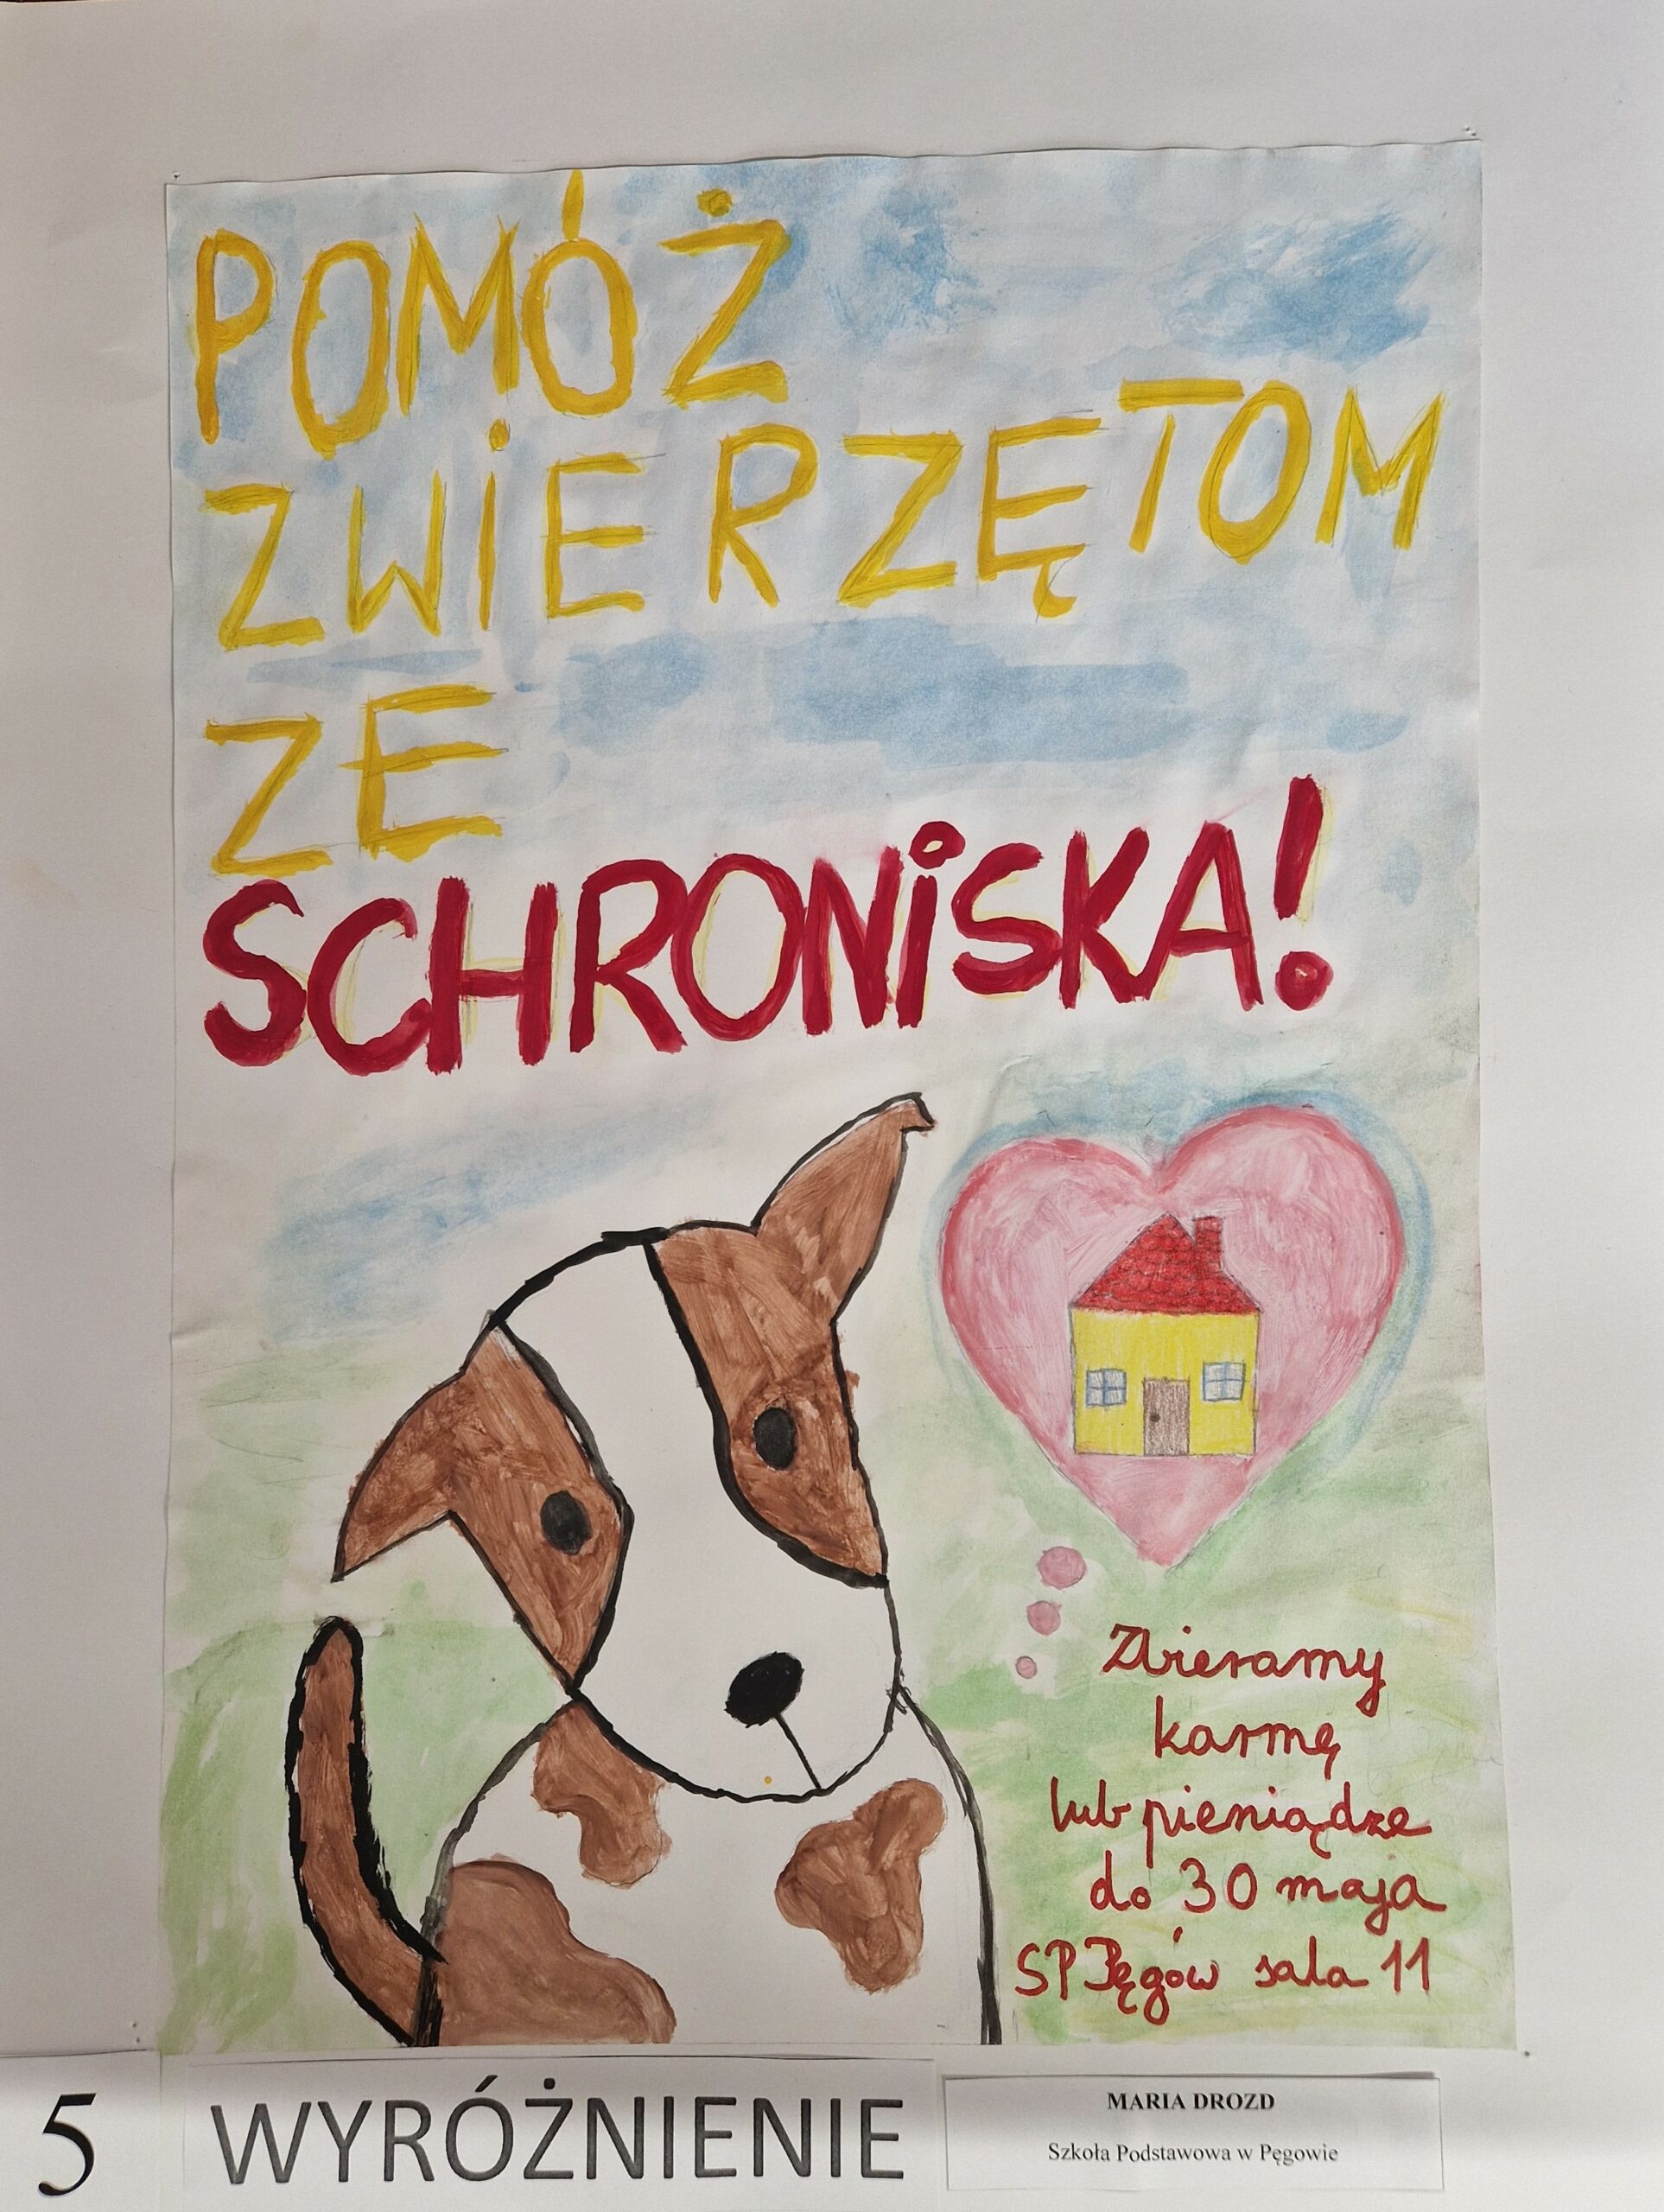 POMÓŻ
ZWiERZĘTOM
ZE
SCHRONiSKA!
Zbieramy
karmę
lub pieniądze
do 30 maja
SP Pęgów sala 11
5 WYRÓŻNIENIE
MARIA DROZD
Szkoła Podstawowa w Pęgowie